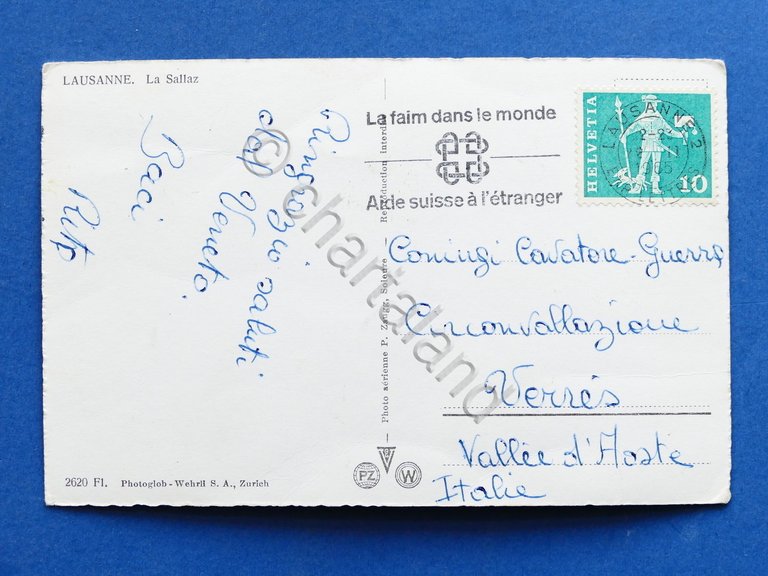 LAUSANNE. La Sallaz
Ringrazio saluti
dal Veneto.
Baci
2620 Fl. Photoglob - Wehrli S. A., Zurich
Photo aérienne P. Zaugg, Soleure - Reproduction interdite
PZ
W
La faim dans le monde
Aide suisse à l'étranger
HELVETIA
10
LAUSANNE 2
Coniugi Cavatore-Guerra
Circonvallazione
Verrès
Vallée d'Aoste
Italie
© chartaland